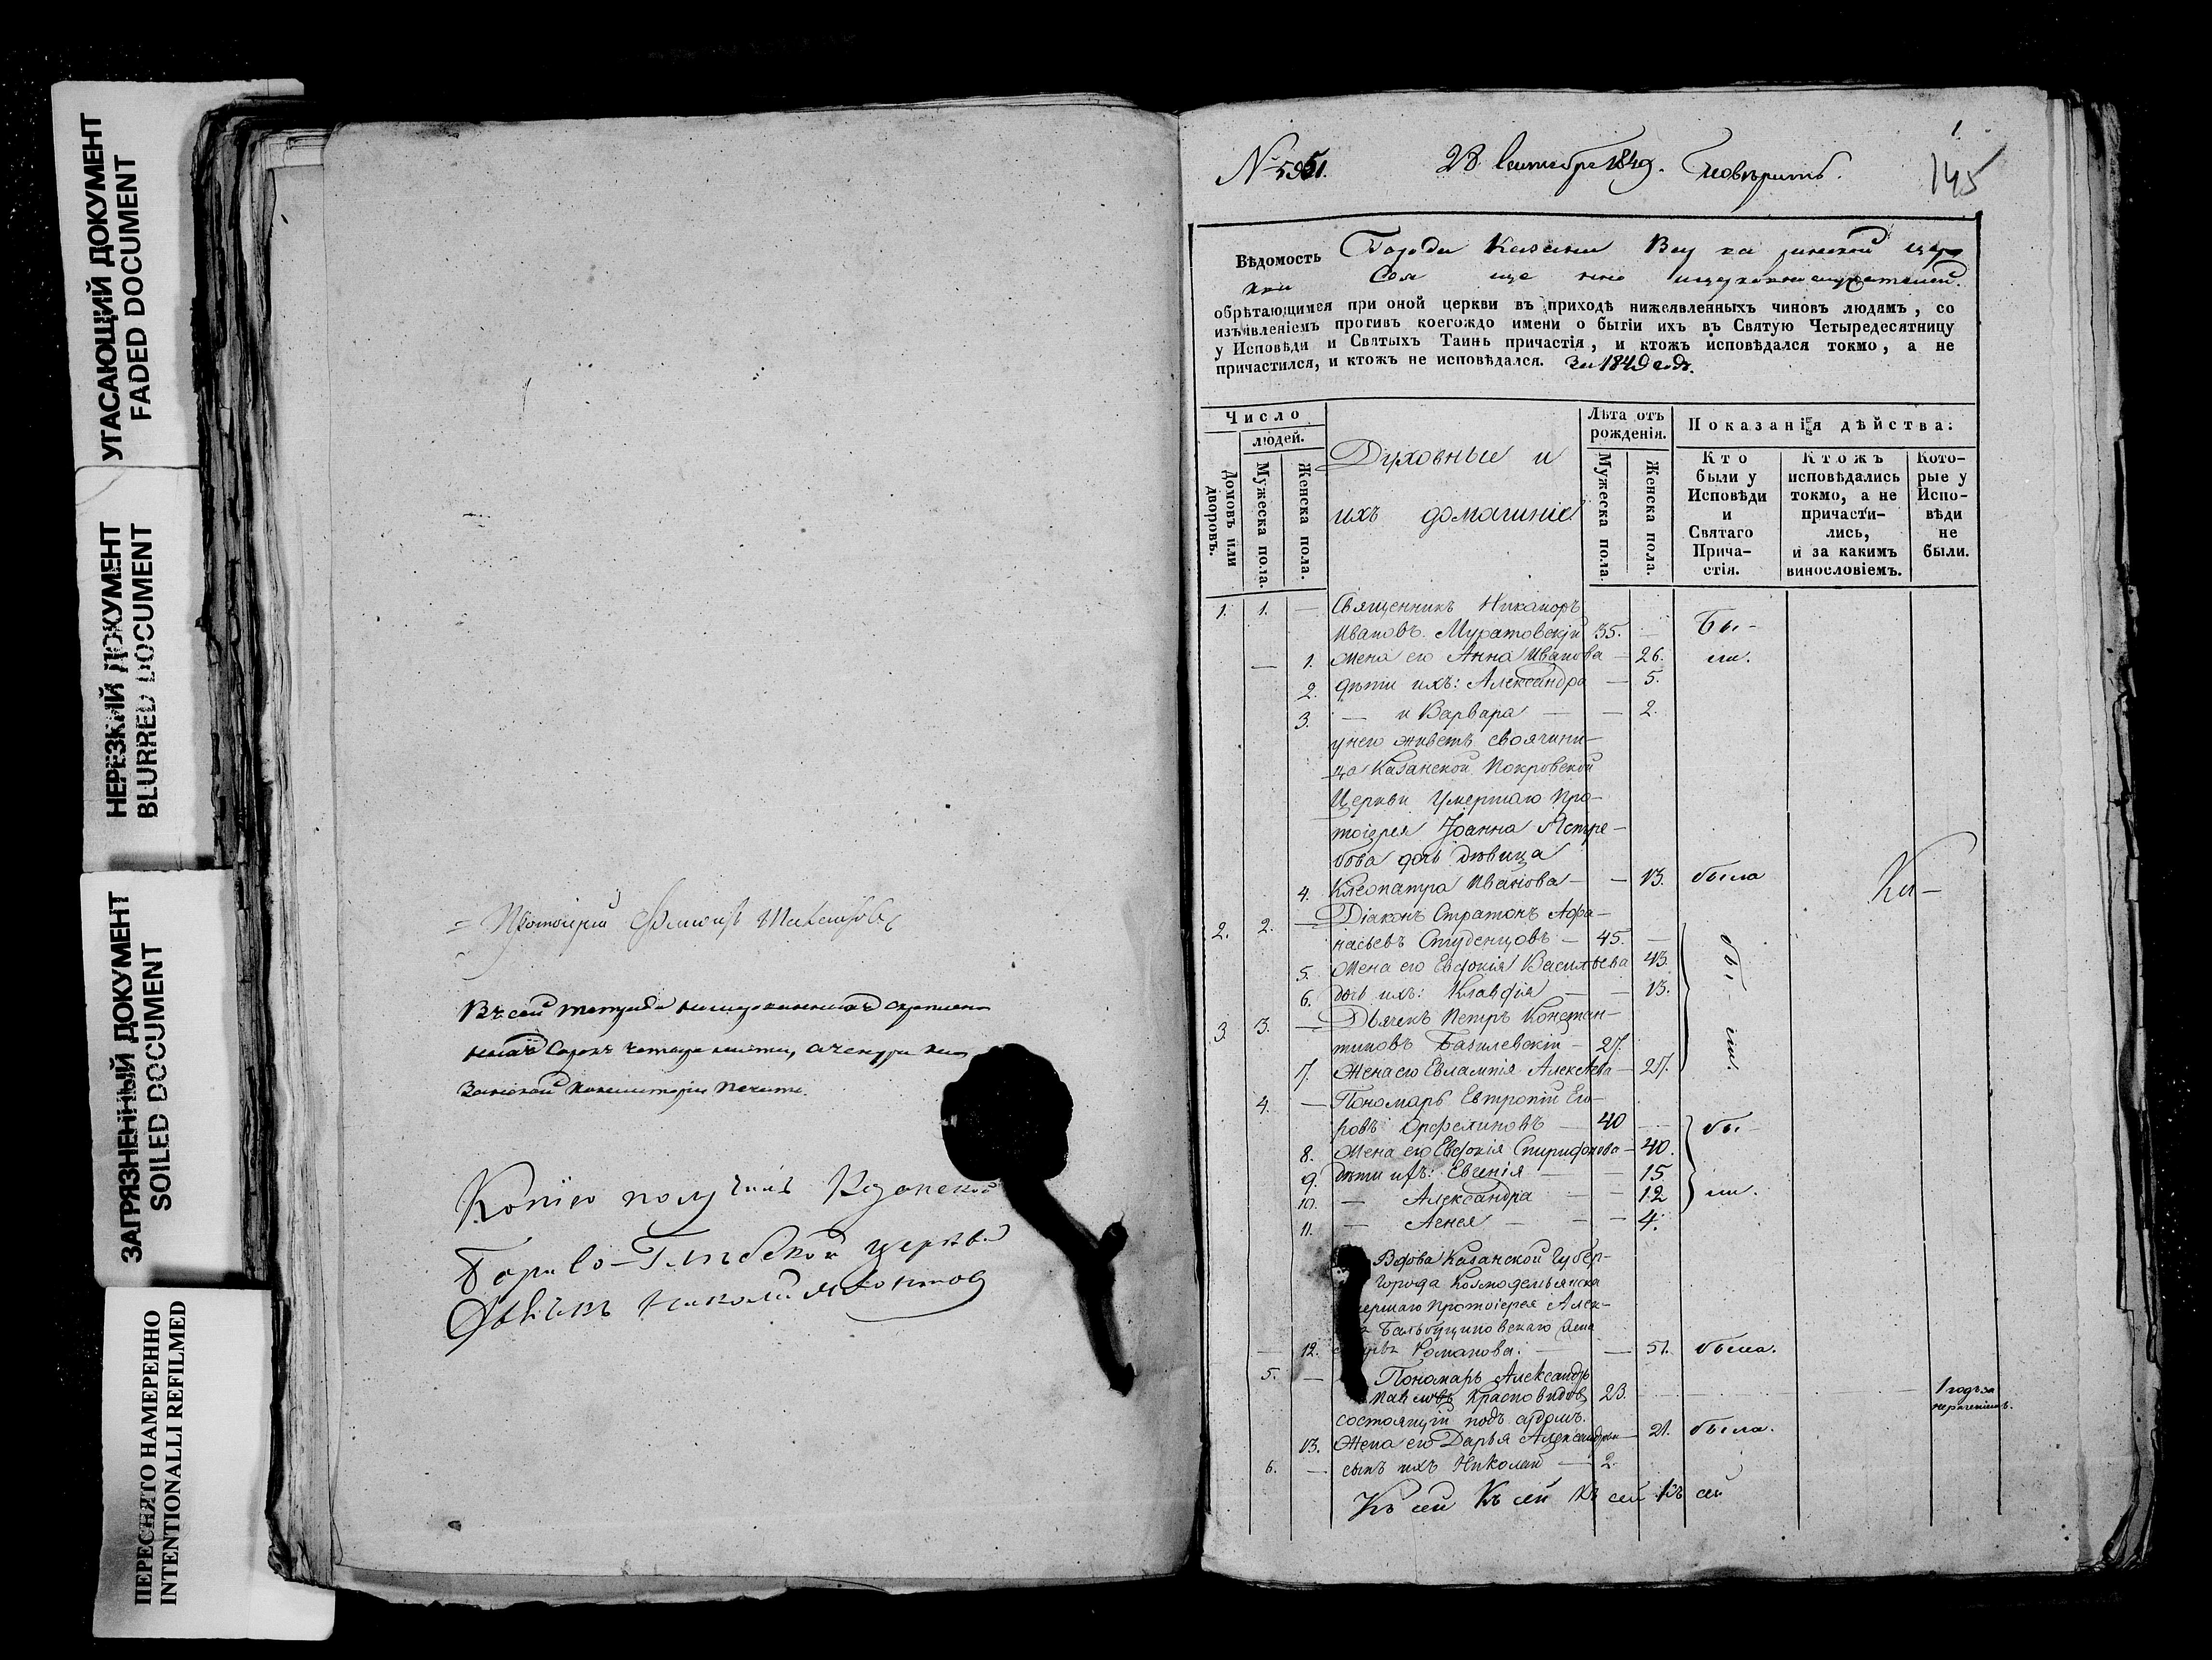 УГАСАЮЩИЙ ДОКУМЕНТ
FADED DOCUMENT
НЕРЕЗКИЙ ДОКУМЕНТ
BLURRED DOCUMENT
ЗАГРЯЗНЕННЫЙ ДОКУМЕНТ
SOILED DOCUMENT
ПЕРЕСНЯТО НАМЕРЕННО
INTENTIONALLI REFILMED
Протоіерей
Въ сей тетради
Сорокъ четыре листа,
Консисторіи печати.
Копію получилъ Казанской
Борисо-Глѣбской церкви
Дьячекъ Николай
1.
28 Сентября 1849. Повѣрить.
145
Вѣдомость Города Казани церк
Свя ще нно ицерковнослужителей.
обрѣтающимся при оной церкви въ приходѣ нижеявленныхъ чиновъ людямъ, со
изъявленіемъ противъ коегождо имени о бытіи ихъ въ Святую Четыредесятницу
у Исповѣди и Святыхъ Таинъ причастія, и ктожъ исповѣдался токмо, а не
причастился, и ктожъ не исповѣдался. За 1849 годъ.
Число
людей.
Домовъ или дворовъ.
Мужеска пола.
Женска пола.
Духовные и
ихъ домашніе
Лѣта отъ рожденія.
Мужеска пола.
Женска пола.
Показанія дѣйства:
Кто были у Исповѣди и Святаго Прича- стія.
Ктожъ исповѣдались токмо, а не причасти- лись, и за какимъ винословіемъ.
Кото- рые у Испо- вѣди не были.
1. 1. — Священникъ Никаноръ
Ивановъ Муратовскій 35. — Бы-
— 1. Жена его Анна Иванова — 26. ли.
2. дѣти ихъ: Александра — 5.
3. — и Варвара — — 2.
у него живетъ своячини-
ца Казанской Покровской
Церкви Умершаго Про-
тоіерея Іоанна Ястре-
бова дочь дѣвица
4. Клеопатра Иванова — — 13. была
2. 2. — Діаконъ Стратонъ Афа-
насьевъ Студенцовъ — 45. — бы-
5. Жена его Евдокія Васильева 43.
6. дочь ихъ: Клавдія — — 13.
3 3. — Дьячекъ Петръ Констан-
тиновъ Базилевскій — 27. ли.
7. Жена его Евлампія Алексѣева — 27.
4. — Пономарь Евтропій Его-
ровъ Орфелиновъ — 40 — бы-
8. Жена его Евдокія Спиридонова — 40.
9. дѣти ихъ: Евгенія — — 15.
10. — Александра — — 12 ли.
11. — Агнея — — 4.
Вдова Казанской Губер-
города Козмодемьянска
Протоіерея Алек-
жена
— 12. Романова. — — 51. была.
5. — Пономарь Александръ
Павловъ Красновидовъ 23. — — — 1 годъ за
состоящій подъ судомъ.
13. Жена его Дарья Александрова — 21. была.
6. — сынъ ихъ Николай — 2.
Къ сей Къ сей Къ сей Къ сей